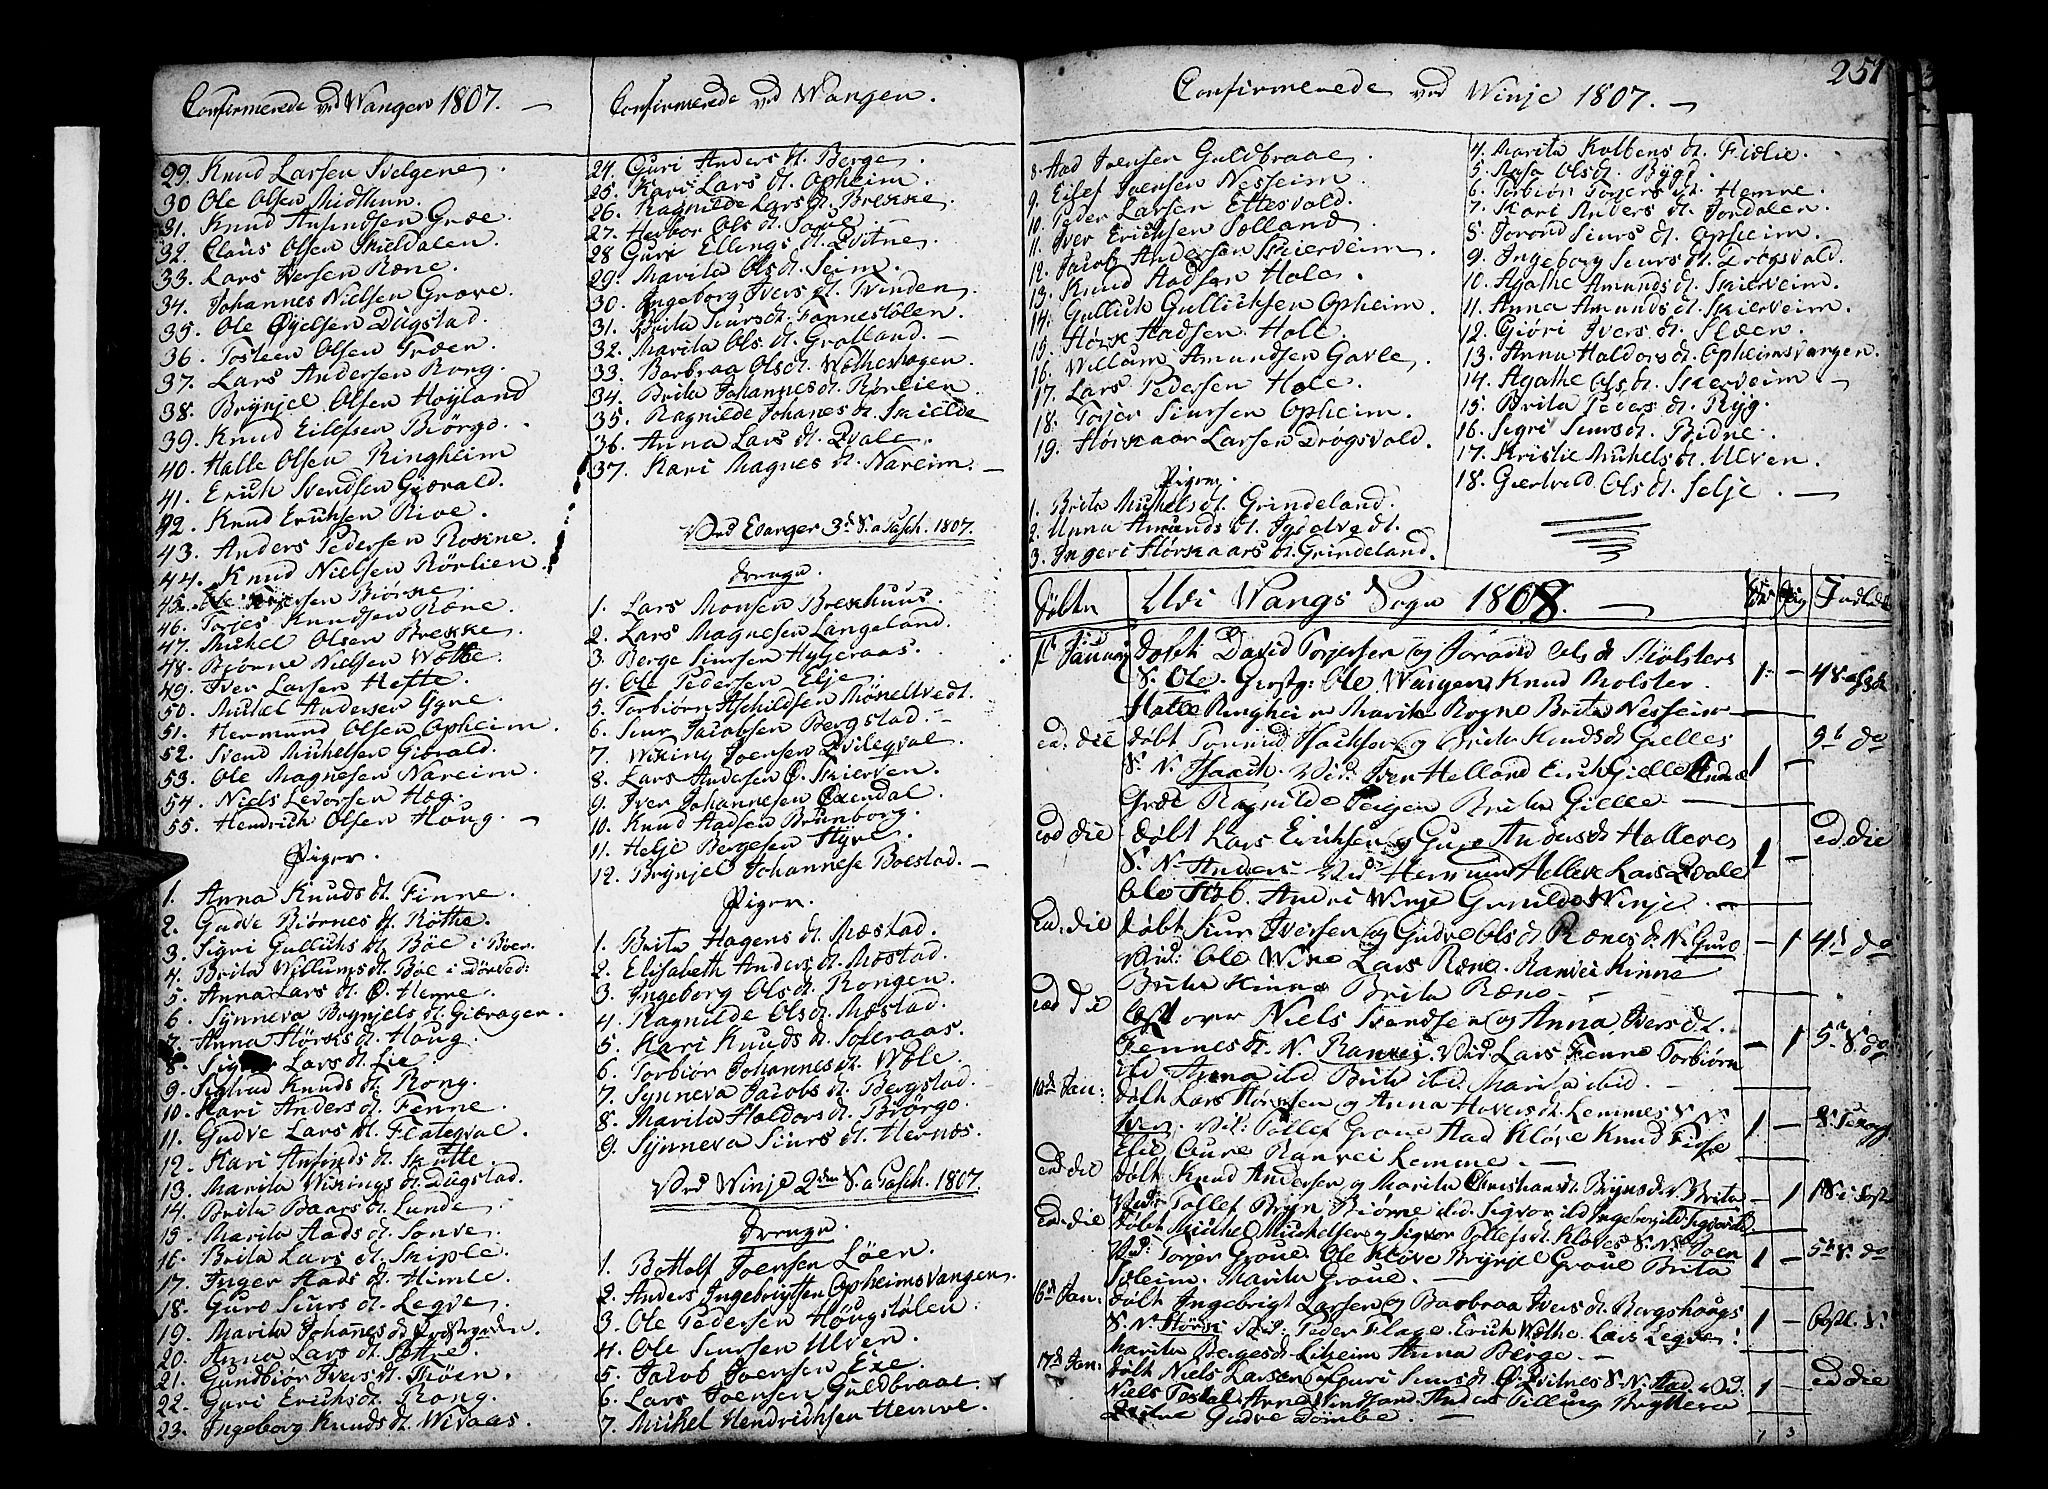 Confirmerede ved Wangen 1807. –
29. Knud Larsen Svelgene.
30 Ole Olsen Midthun.
31. Knud Anfindsen Græe.
32. Claus Olsen Skieldalen.
33. Lars Iversen Ræne.
34. Johannes Nielsen Grove.
35. Ole Øyelsen Dugstad.
36. Tosteen Olsen Træen.
37. Lars Andersen Rong.
38. Brynjel Olsen Høyland
39. Knud Eilefsen Biørgo.
40. Halle Olsen Ringheim
41. Erich Svendsen Giørald.
42. Knud Erichsen Rive.
43. Anders Pedersen Rokne.
44. Knud Nielsen Rörlien.
45. Ole Biørke.
46. Torjes Knudsen Ræne.
47. Michel Olsen Brekke.
48. Biørne Nielsen Wöthe.
49. Iver Larsen Hefte.
50. Michel Andersen Ygne.
51. Hermund Olsen Opheim.
52. Svend Michelsen Giörald.
53. Ole Magnesen Nareim.
54. Niels Levorsen Hæg.
55. Hendrich Olsen Houg. –
Piger.
1. Anna Knuds dt. Finne.
2. Gudve Biörnes dt. Röthe.
3. Sigri Gullichs dt. Böe i Boer.
4. Brita Willums dt. Böe i Dörved:
5. Anna Lars dt. Ø. Henne.
6. Synneva Brynjels dt. Giörager.
7. Anna Hörks dt. Houg.
8. Lars dt. Lie
9. Sigtrud Knuds dt. Rong.
10. Kari Anders dt. Fenne.
11. Gudve Lars dt. Flateqval.
12. Kari Anfinds dt. Skutte.
13. Marita Vikings dt. Dugstad.
14. Brita Baars dt. Lunde.
15. Marita Aads dt. Sonve.
16. Brita Lars dt. Skiple.
17. Inger Aads dt. Himle.
18. Guro Siurs dt. Legve.
19. Marita Johannes dt.
20. Anna Lars dt. Sætre.
21. Gundbiör Ivers dt. Möen.
22. Guri Erichs dt. Rong.
23. Ingeborg Knuds dt. Wivaas.
Confirmerede ved Wangen.
24. Guri Anders dt. Berge.
25. Kari Lars dt. Opheim.
26. Ragnilde Lars dt. Brekke.
27. Herbor Ols dt. Saue.
28 Guri Ellings dt. Qvitne.
29. Marita Ols dt. Seim.
30. Ingeborg Ivers dt. Tvinden.
31. Brita Siurs dt. Fonnestölen.
32. Marita Ols dt. Grotland. –
33. Barbraa Ols dt. Wöthehogen.
34. Brita Johannes dt. Rörlien.
35. Ragnilde Johanes dt. Skielde
36. Anna Lars dt. Qvale.
37. Kari Magnes dt. Nareim. –
Ved Evanger 3die S. a Pasch. 1807.
Drenge.
1. Lars Monsen Brekhuus.
2. Lars Magnesen Langeland.
3. Berge Siursen Hyljeraas.
4. Ole Pedersen Elje.
5. Torbiørn Aschildsen Mögeltvedt.
6. Siur Jacobsen Bergstad. –
7. Wiking Joensen Qvileqval.
8. Lars Andersen Ø. Skierven.
9. Iver Johannesen Øxendal.
10. Knud Aadsen Brunborg.
11. Helje Bergesen Hyrt.
12. Brynjel Johannese Boestad. –
Piger.
1. Brita Hagens dt. Mæstad.
2. Elisabeth Anders dt. Mæstad.
3. Ingeborg Ols dt. Rongen.
4. Ragnilde Ols dt. Mæstad.
5. Kari Knuds dt. Soleraas.
6. Torbiör Johannes dt. Wöle.
7. Synneva Jacobs dt. Bergstad.
8. Marita Haldors dt. Biörgo.
9. Synneva Siurs dt. Hernæs.
Ved Winje 2den S. a Pasch. 1807.
Drenge
1. Bottolf Joensen Löen.
2. Anders Ingebrigtsen Opheimsvangen.
3. Ole Pedersen Hougstölen.
4. Ole Siursen Ulven.
5. Jacob Joensen Exe.
6. Lars Joensen Guldbraae.
7. Michel Hendrichsen Hemre.
251
Confirmerede ved Winje 1807. –
8. Aad Joensen Guldbraae.
9. Eilef Joensen Nesheim.
10. Peder Larsen Ettesvold.
11. Iver Erichsen Sælland.
12. Jacob Andersen Skierveim.
13. Knud Aadsen Hole.
14. Gullich Gullichsen Opheim.
15. Hörk Aadsen Hole.
16. Willum Amundsen Gavle.
17. Lars Pedersen Hole.
18. Torjer Siursen Opheim.
19. Horskaar Larsen Drögsvold.
Pigen.
1. Brita Michels dt. Grindeland.
2. Anna Amunds dt. Tydetvedt.
3. Ingeri Horskaars dt. Grindeland.
4. Marita Kolbens dt. Fiölie.
5. Aasa Ols dt. Rygd.
6. Torbiör Torjers dt. Hemre.
7. Kari Anders dt. Jordalen.
8. Jorond Siurs dt. Opheim.
9. Ingeborg Siurs dt. Drögsvold.
10. Agathe Amunds dt. Skierveim.
11. Anna Amunds dt. Skierveim.
12. Giöri Ivers dt. Slæen.
13. Anna Haldors dt. Opheimsvangen.
14. Agathe Ols dt. Skierveim. –
15. Brita Peders dt. Ryg.
16. Sigri Siurs dt. Bidne.
17. Kristie Michels dt. Ulven.
18. Giertrud Ols dt. Selje. –
Udi Wangs Sogn 1808. –
1ste Januarij Döbt David Torjersen og Jorand Ols dt Mölsters 1 –
S. Ole. Ole Wangen, Knud Molster
Halle Ringheim Marita Rogne Brita Nesheim
ead. die Döbt Tormud Isachsen og Brita Knuds dt Gielles 9de do
S. N. Isaach. Vid: Iver Helland Erich Gielle 1 –
Græe Ragnilde Teigen Brita Gielle. –
eod die Döbt Lars Erichsen og Guro Anders dt Helleves ead. die
S. N. Anders. Vid: Hermund Helleve Lars Qvale 1 –
Ole ibid. Andri Winje Gunilde Winje. –
ead. die Döbt Siur Iversen og Gudve Ols dt Rænes dt. N. Guro – 1 4de do
Vid: Ole Wike Lars Ræne. Ranvei Kinne
Brita Kinne Brita Ræne –
eod die Læst over Niels Svendsen og Anna Ivers dt.
Fennes dt. N. Ranvei. Vid Lars Fenne Torbiörn – 1 5te S. do
ibd Anna ibd Brita ibd. Marita ibid. –
10de Jan: Döbt Lars Hörksen og Anna Hovers dt. Lemmes S. N.
Iver. Vid: Tollef Grove Aad Klöve Knud 1 –
Ranvei Lemme. –
ead die Döbt Knud Andersen og Marita Christians dt. Bryns dt. N. Brita – 1
Vid: Tollef Bryn Biörne ibid. Sigvor ibd Ingeborg ibd.
ead. die Döbt Michel Michelsen og Sigvor Tollefs dt. Kloves S. N. Joen
Vid: Torjer Grove. Ole Klöve Brynjel Grove Brita 1 – 5te S. do
Soleim. Marita Grove. –
16de Jan. Döbt Ingebrigt Larsen og Barbraa Ivers dt. Bergshougs
S. N. Vid: Peder Flage. Erich Wöthe. Lars Legve. 1 –
Marita Berges dt. Anna Berge –
17de Jan: Döbt Niels Larsen og Guri Siurs dt. Ø. Qvitnes S. N. Aad. Vid: ead die
Niels 1 –
Gudve Dömbe. –
1 3